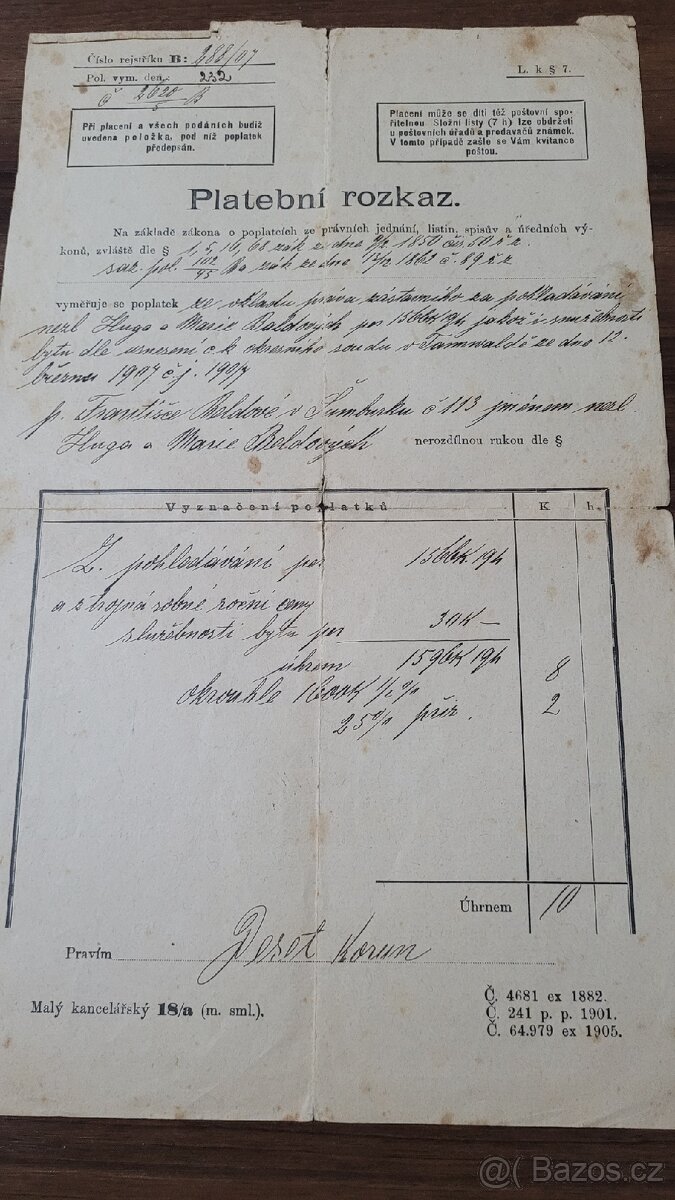 Číslo rejstříku B: 288/07
Pol. vym. den.: 232
č 2620 B
5
L. k § 7.
Při placení a všech podáních budiž
uvedena položka, pod níž poplatek
předepsán.
Placení může se díti též poštovní spo-
řitelnou Složní listy (7 h) lze obdržeti
u poštovních úřadů a prodavačů známek.
V tomto případě zašle se Vám kvitance
poštou.
Platební rozkaz.
Na základě zákona o poplatcích ze právních jednání, listin, spisův a úředních vý-
konů, zvláště dle § 1, 5, 16, 68 zák ze dne 9/2 1850 čís. 50 ř z
saz. pol. 102/45 Ba zák ze dne 13/12 1862 č. 89 ř z
vyměřuje se poplatek ze vkladu práva zástavního za pohledávání
nezl Huga a Marie Boldových per 1566K 19h jakož i služebnosti
bytu dle usnesení c k okresního soudu v ze dne 12.
března 1907 č j. 1907
p. Františce Boldové v Šumburku č 113 jménem nezl.
Huga a Marie Boldových nerozdílnou rukou dle §
Vyznačení poplatků K h
Z pohledávání per 1566K 19h
a roční ceny
služebnosti bytu per 30K —
úhrnem 1596K 19h
okrouhle 1600K 1/2 % 8
25% přir. 2
Úhrnem 10
Pravím Deset Korun
Malý kancelářský 18/a (m. sml.).
Č. 4681 ex 1882.
Č. 241 p. p. 1901.
Č. 64.979 ex 1905.
@ Bazos.cz